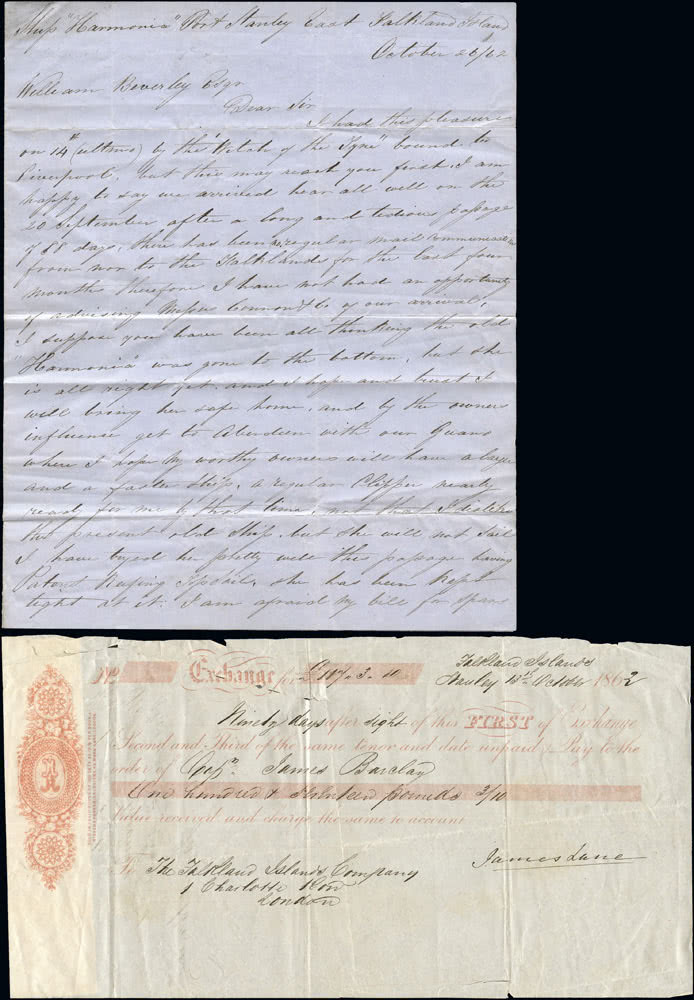 Ship "Harmonia" Port Stanley East Falkland Island
October 26/62
William Beverley Esqr
Dear Sir
I had this pleasure
on 14th (ultimo) by the "Witch of the Tyne" bound to
Liverpool, but this may reach you first. I am
happy to say we arrived hear all well on the
20 September after a long and tedious passage
of 88 days, there has been no regular mail communication
from nor to the Falklands for the last four
months therefore I have not had an opportunity
of advising Messrs & Co of our arrival,
I suppose you have been all thinking the old
"Harmonia" was gone to the bottom, but she
is all right yet, and I hope and trust I
will bring her safe home, and by the owners
influence get to Aberdeen with our Guano
where I hope my worthy owners will have a larger
and a faster ship, a regular Clipper nearly
ready for me by that time, not that I dislike
the present old ship, but she will not sail
I have tryed her pretty well this passage having
Patent Reefing Topsails, she has been kept
tight at it. I am afraid my bill for spars
No Exchange for £117.3.10 Falkland Islands
Stanley 13th October 1862
Ninety days after sight of this FIRST of Exchange
Second and Third of the same tenor and date unpaid Pay to the
order of Capn. James Barclay
One hundred & Seventeen pounds 3/10
Value received and charge the same to account
To The Falkland Islands Company James Lane
1 Charlotte Row
London